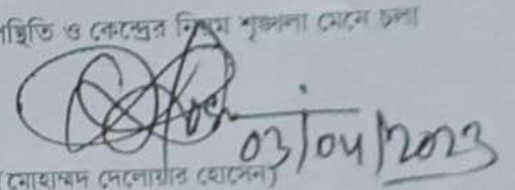 স্থিতি ও কেন্দ্রের নিয়ম শৃঙ্খলা মেনে চলা
03/04/2023
(মোহাম্মদ দেলোয়ার হোসেন)